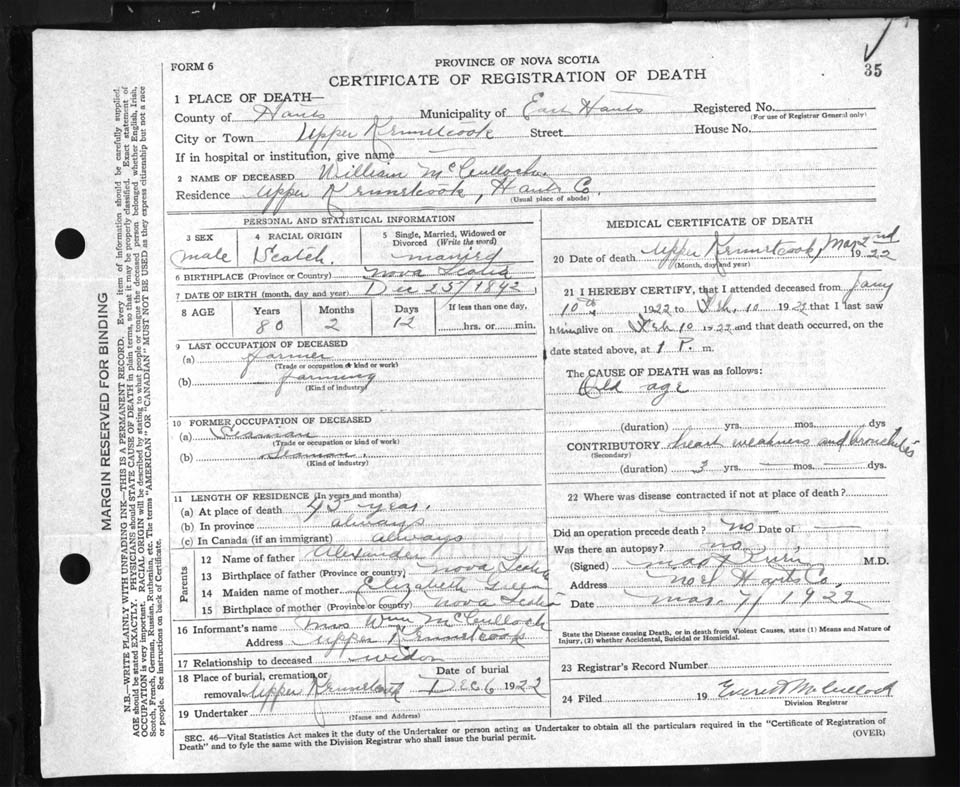 35
FORM 6
PROVINCE OF NOVA SCOTIA
CERTIFICATE OF REGISTRATION OF DEATH
1 PLACE OF DEATH—
County of Hants Municipality of East Hants Registered No.
(For use of Registrar General only)
City or Town Upper Kennetcook Street House No.
If in hospital or institution, give name
2 NAME OF DECEASED William McCulloch
Residence Upper Kennetcook, Hants Co.
(Usual place of abode)
PERSONAL AND STATISTICAL INFORMATION
3 SEX 4 RACIAL ORIGIN 5 Single, Married, Widowed or Divorced (Write the word)
male Scotch married
6 BIRTHPLACE (Province or Country) Nova Scotia
7 DATE OF BIRTH (month, day and year) Dec 25/1842
8 AGE Years Months Days If less than one day,
80 2 12 hrs. or min.
9 LAST OCCUPATION OF DECEASED
(a) farmer
(Trade or occupation or kind or work)
(b) farming
(Kind of industry)
10 FORMER OCCUPATION OF DECEASED
(a) Seaman
(Trade or occupation or kind of work)
(b) Seaman
(Kind of industry)
11 LENGTH OF RESIDENCE (In years and months)
(a) At place of death 45 year.
(b) In province always
(c) In Canada (if an immigrant) always
Parents
12 Name of father Alexander
13 Birthplace of father (Province or country) Nova Scotia
14 Maiden name of mother Elizabeth Green
15 Birthplace of mother (Province or country) Nova Scotia
16 Informant's name Mrs Wm McCulloch
Address Upper Kennetcook
17 Relationship to deceased widow
18 Place of burial, cremation or removal Upper Kennetcook Date of burial Dec 6 1922
19 Undertaker
(Name and Address)
MEDICAL CERTIFICATE OF DEATH
20 Date of death Upper Kennetcook, Mar 2nd 1922
(Month, day and year)
21 I HEREBY CERTIFY, that I attended deceased from Jany
10th 1922 to Feb. 10 1922 that I last saw
him alive on Feb 10 1922 and that death occurred, on the
date stated above, at 1 P. m.
The CAUSE OF DEATH was as follows:
Old age
(duration) yrs. mos. dys
CONTRIBUTORY heart weakness and bronchitis
(Secondary)
(duration) 3 yrs. mos. dys.
22 Where was disease contracted if not at place of death?
Did an operation precede death? no Date of
Was there an autopsy? no
(Signed) M.D.
Address Noel Hants Co.
Date Mar. 7/1922
State the Disease causing Death, or in death from Violent Causes, state (1) Means and Nature of
Injury, (2) whether Accidental, Suicidal or Homicidal.
23 Registrar's Record Number
24 Filed 19 Everett McCulloch
Division Registrar
SEC. 46—Vital Statistics Act makes it the duty of the Undertaker or person acting as Undertaker to obtain all the particulars required in the "Certificate of Registration of
Death" and to fyle the same with the Division Registrar who shall issue the burial permit. (OVER)
MARGIN RESERVED FOR BINDING
N.B.—WRITE PLAINLY WITH UNFADING INK—THIS IS A PERMANENT RECORD. Every item of information should be carefully supplied.
AGE should be stated EXACTLY. PHYSICIANS should STATE CAUSE OF DEATH in plain terms, so that it may be properly classified. Exact statement of
OCCUPATION is very important. RACIAL ORIGIN will be described by stating to what people or tongue the deceased person belonged whether English, Irish,
Scotch, French, German, Russian, Ruthenian, etc. The terms "AMERICAN" or "CANADIAN" MUST NOT BE USED as they express citizenship but not a race
or people. See instructions on back of Certificate.